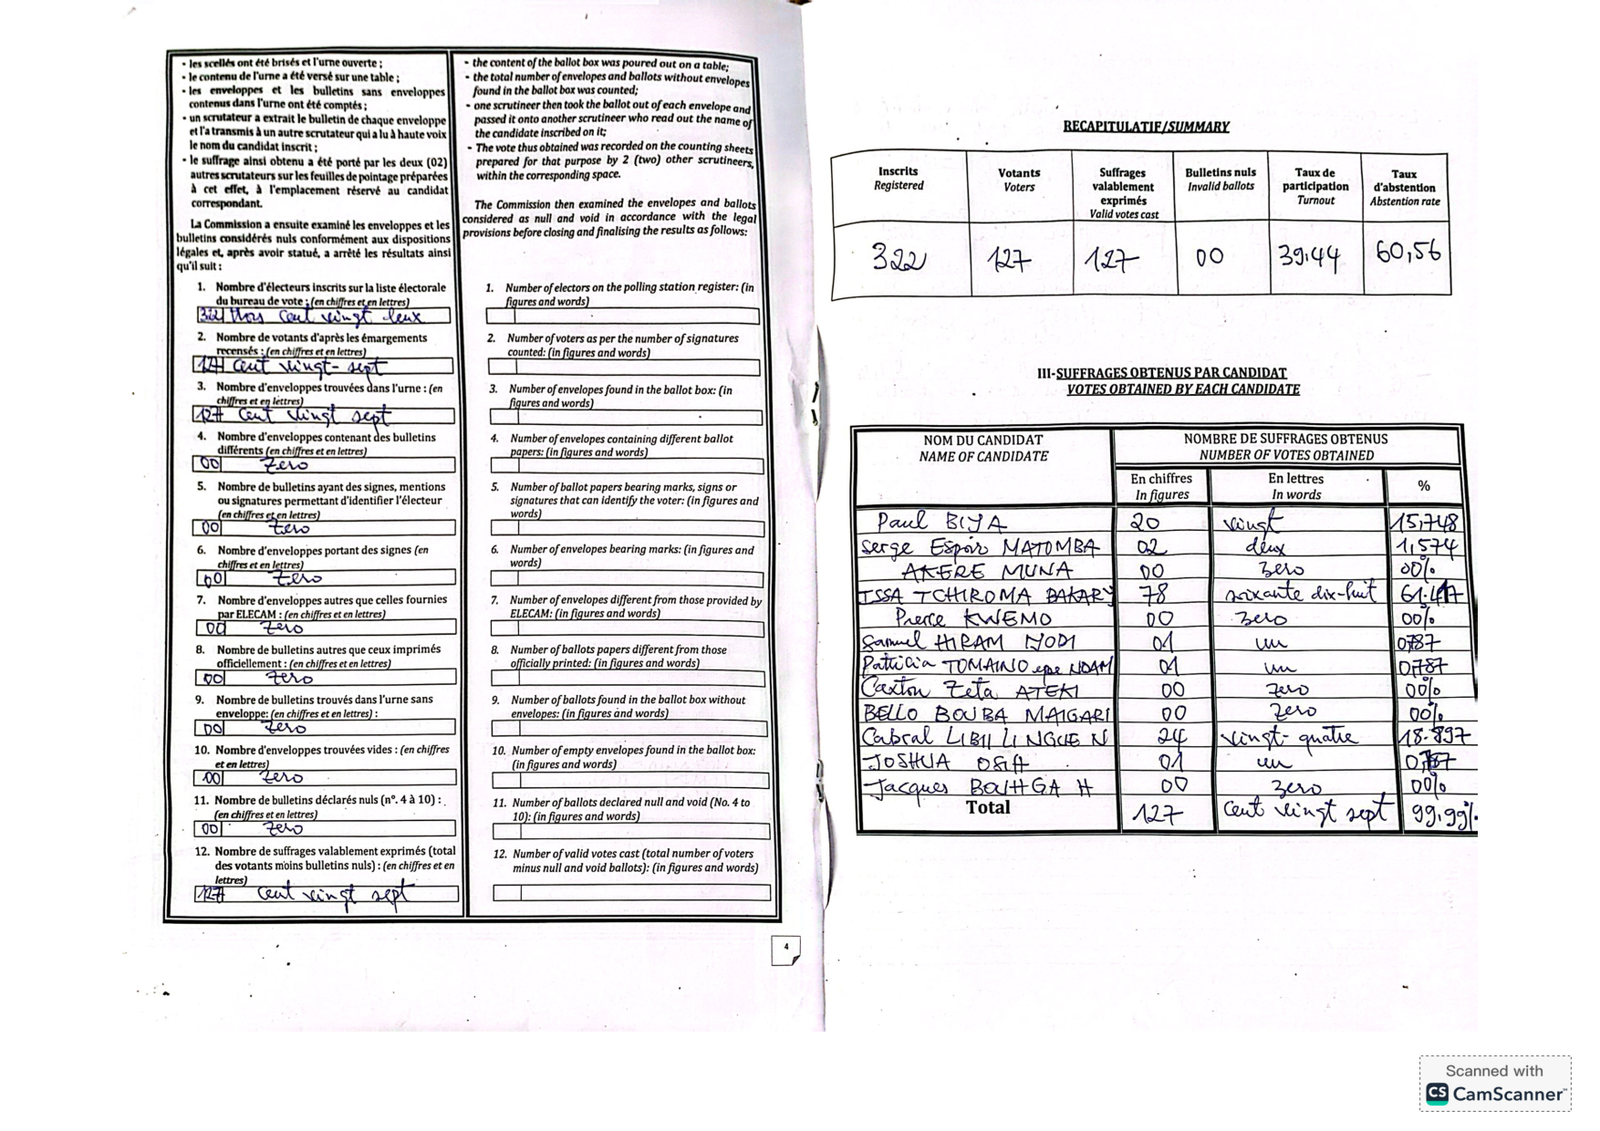 • les scellés ont été brisés et l'urne ouverte ;
• le contenu de l'urne a été versé sur une table ;
• les enveloppes et les bulletins sans enveloppes
contenus dans l'urne ont été comptés ;
• un scrutateur a extrait le bulletin de chaque enveloppe
et l'a transmis à un autre scrutateur qui a lu à haute voix
le nom du candidat inscrit ;
• le suffrage ainsi obtenu a été porté par les deux (02)
autres scrutateurs sur les feuilles de pointage préparées
à cet effet, à l'emplacement réservé au candidat
correspondant.
La Commission a ensuite examiné les enveloppes et les
bulletins considérés nuls conformément aux dispositions
légales et, après avoir statué, a arrêté les résultats ainsi
qu'il suit :
1. Nombre d'électeurs inscrits sur la liste électorale
du bureau de vote : (en chiffres et en lettres)
322 trois cent vingt deux
2. Nombre de votants d'après les émargements
recensés : (en chiffres et en lettres)
127 cent vingt-sept
3. Nombre d'enveloppes trouvées dans l'urne : (en
chiffres et en lettres)
127 cent vingt sept
4. Nombre d'enveloppes contenant des bulletins
différents (en chiffres et en lettres)
00 Zero
5. Nombre de bulletins ayant des signes, mentions
ou signatures permettant d'identifier l'électeur
(en chiffres et en lettres)
00 Zero
6. Nombre d'enveloppes portant des signes (en
chiffres et en lettres)
00 Zero
7. Nombre d'enveloppes autres que celles fournies
par ELECAM : (en chiffres et en lettres)
00 Zero
8. Nombre de bulletins autres que ceux imprimés
officiellement : (en chiffres et en lettres)
00 Zero
9. Nombre de bulletins trouvés dans l'urne sans
enveloppe: (en chiffres et en lettres) :
00 Zero
10. Nombre d'enveloppes trouvées vides : (en chiffres
et en lettres)
00 Zero
11. Nombre de bulletins déclarés nuls (n°. 4 à 10) : .
(en chiffres et en lettres)
00 Zero
12. Nombre de suffrages valablement exprimés (total
des votants moins bulletins nuls) : (en chiffres et en
lettres)
127 cent vingt sept
• the content of the ballot box was poured out on a table;
• the total number of envelopes and ballots without envelopes
found in the ballot box was counted;
• one scrutineer then took the ballot out of each envelope and
passed it onto another scrutineer who read out the name of
the candidate inscribed on it;
• The vote thus obtained was recorded on the counting sheets
prepared for that purpose by 2 (two) other scrutineers,
within the corresponding space.
The Commission then examined the envelopes and ballots
considered as null and void in accordance with the legal
provisions before closing and finalising the results as follows:
1. Number of electors on the polling station register: (in
figures and words)
2. Number of voters as per the number of signatures
counted: (in figures and words)
3. Number of envelopes found in the ballot box: (in
figures and words)
4. Number of envelopes containing different ballot
papers: (in figures and words)
5. Number of ballot papers bearing marks, signs or
signatures that can identify the voter: (in figures and
words)
6. Number of envelopes bearing marks: (in figures and
words)
7. Number of envelopes different from those provided by
ELECAM: (in figures and words)
8. Number of ballots papers different from those
officially printed: (in figures and words)
9. Number of ballots found in the ballot box without
envelopes: (in figures and words)
10. Number of empty envelopes found in the ballot box:
(in figures and words)
11. Number of ballots declared null and void (No. 4 to
10): (in figures and words)
12. Number of valid votes cast (total number of voters
minus null and void ballots): (in figures and words)
4
RECAPITULATIF/SUMMARY
Inscrits Registered Votants Voters Suffrages valablement exprimés Valid votes cast Bulletins nuls Invalid ballots Taux de participation Turnout Taux d'abstention Abstention rate
322 127 127 00 39.44 60,56
III-SUFFRAGES OBTENUS PAR CANDIDAT
VOTES OBTAINED BY EACH CANDIDATE
NOM DU CANDIDAT NOMBRE DE SUFFRAGES OBTENUS
NAME OF CANDIDATE NUMBER OF VOTES OBTAINED
En chiffres En lettres %
In figures In words
Paul BIYA 20 vingt 15,748
Serge Espoir MATOMBA 02 deux 1,574
AKERE MUNA 00 zero 00%
ISSA TCHIROMA BAKARY 78 soixante dix-huit 61.417
Pierre KWEMO 00 zero 00%
Samuel HIRAM IYODI 01 un 0,787
Patricia TOMAINO epe NDAM 01 un 0,787
Caxton Zeta ATEKI 00 zero 00%
BELLO BOUBA MAIGARI 00 Zero 00%
Cabral LIBII LI NGUE N 24 vingt-quatre 18.897
JOSHUA OSIH 01 un 0,787
Jacques BOUHGA H 00 zero 00%
Total 127 cent vingt sept 99,99%
Scanned with
CS CamScanner